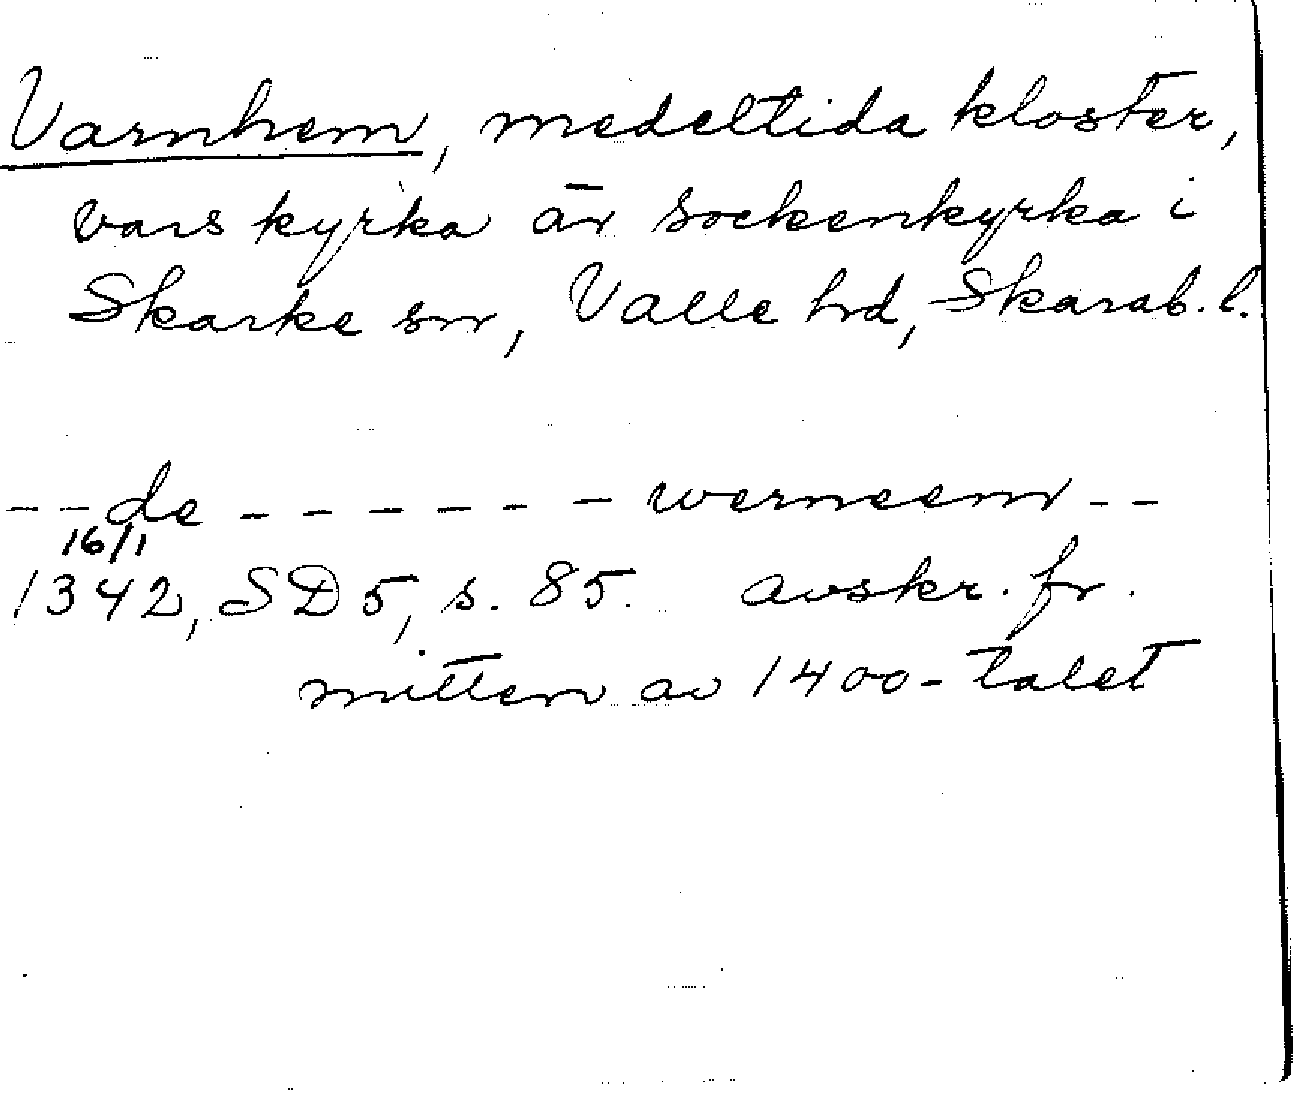 Varnhem, medeltida kloster,
vars kyrka är sockenkyrka i
Skarke sn, Valle hd, Skarab. l.
-- de ------ werneem --
16/1
1342, SD 5, s. 85. avskr. fr.
mitten av 1400-talet